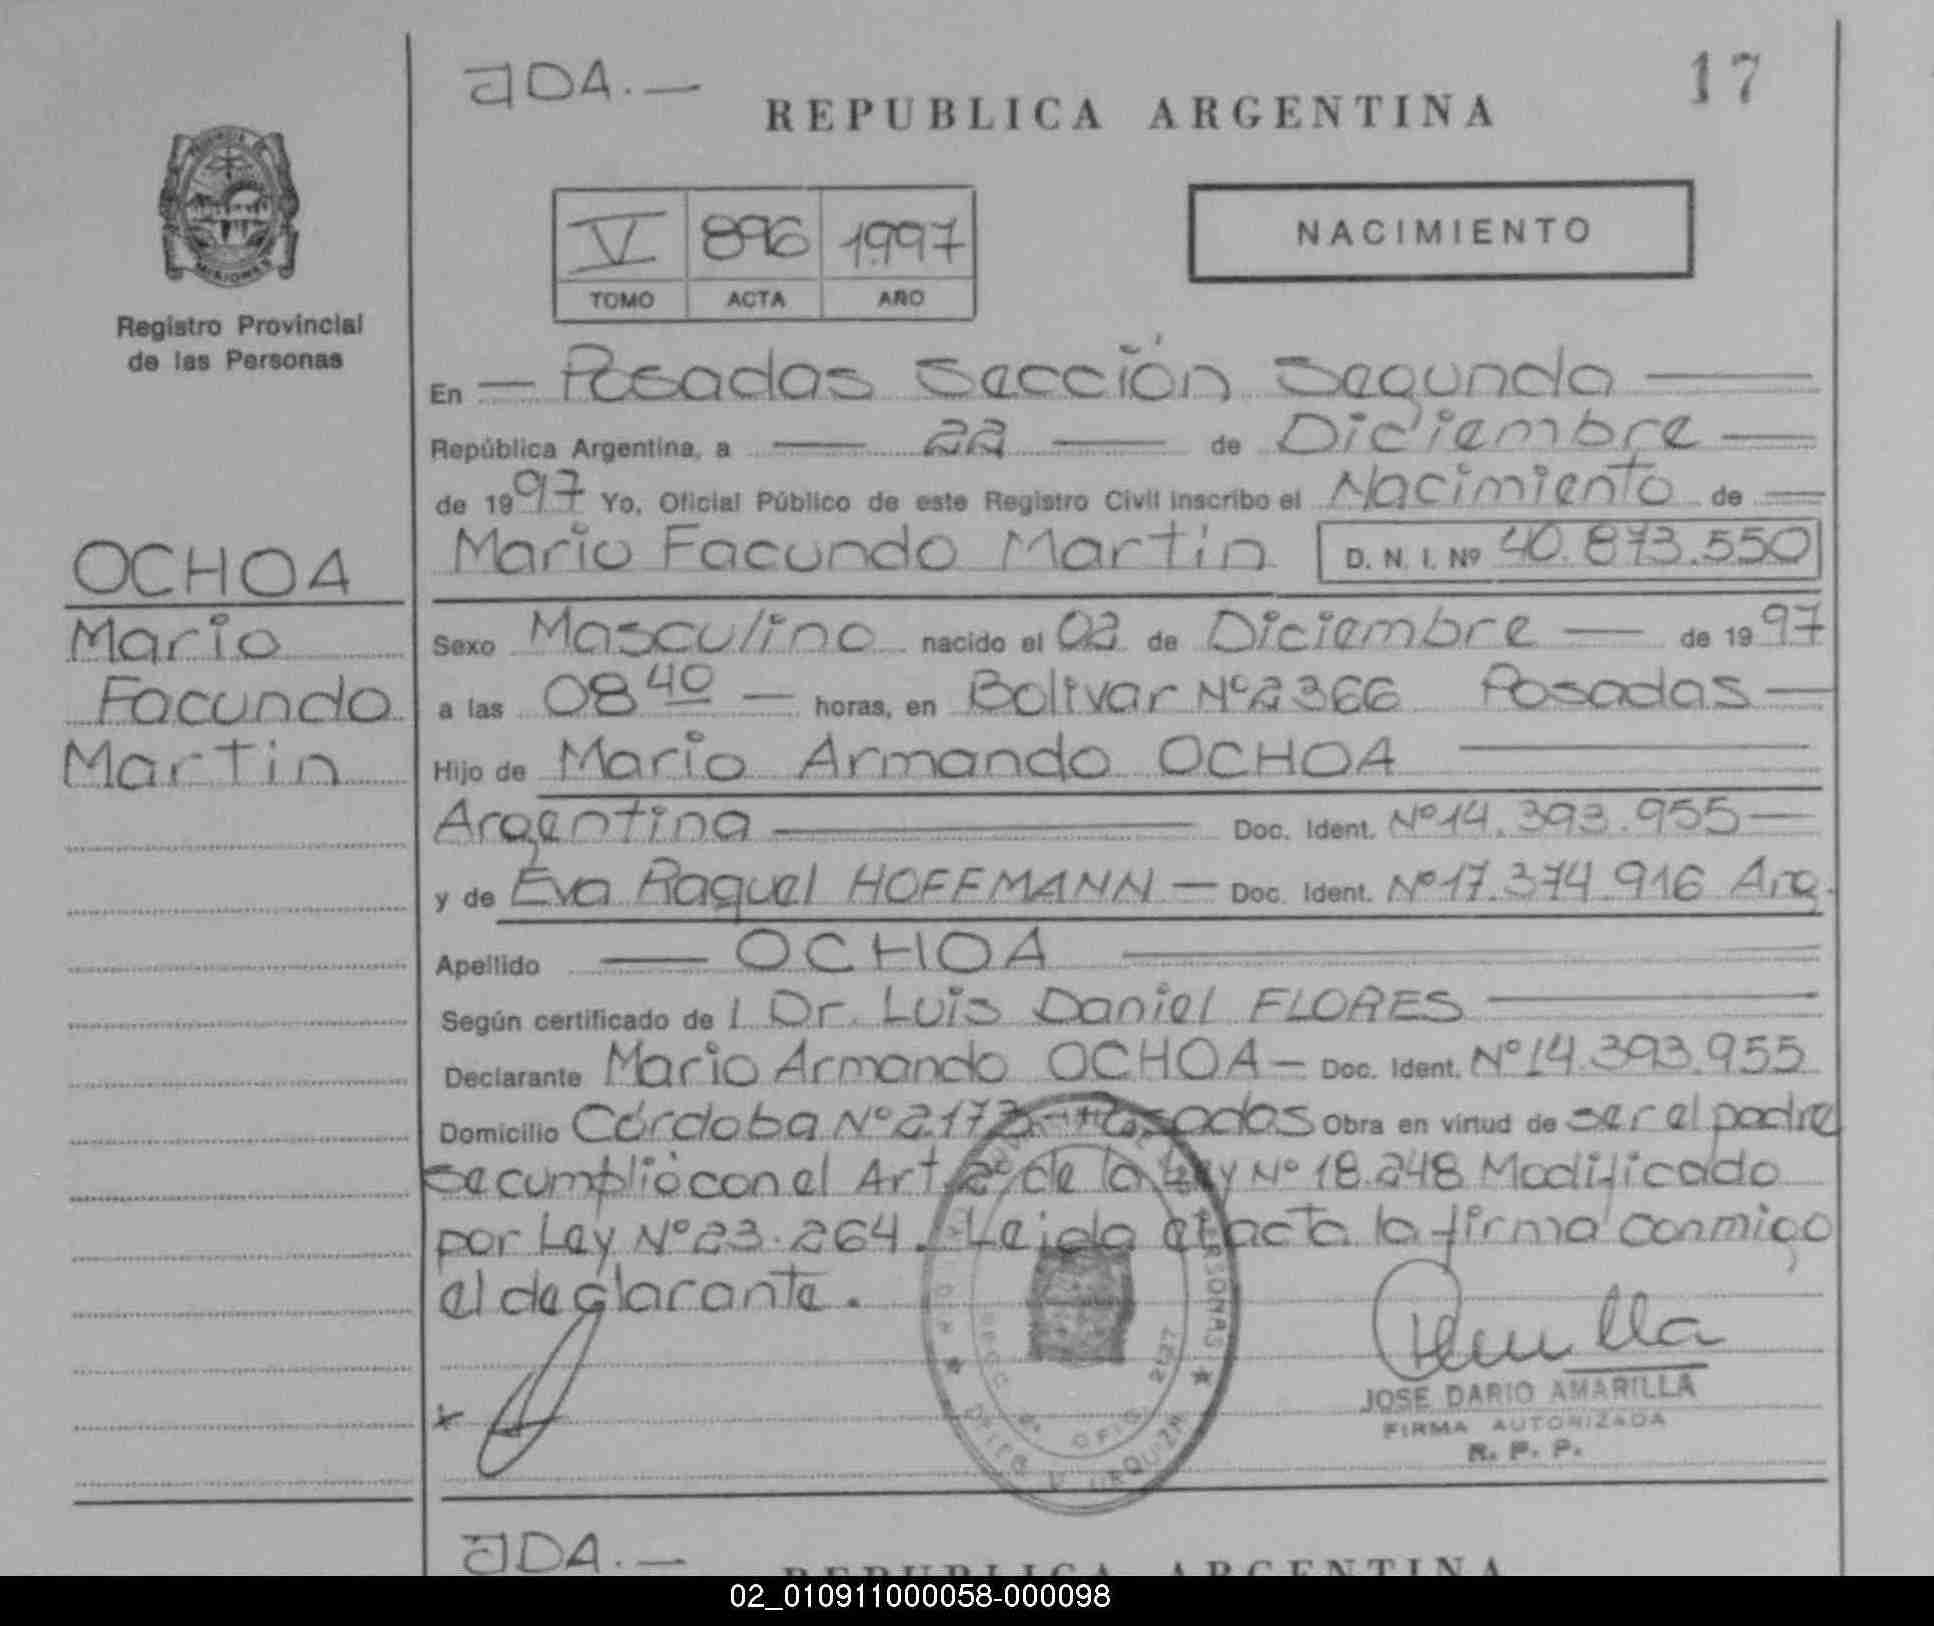 JDA.—
REPUBLICA ARGENTINA
17
V 896 1997
TOMO ACTA AÑO
NACIMIENTO
Registro Provincial
de las Personas
OCHOA
Mario
Facundo
Martin
En — Posadas Sección Segunda —
República Argentina, a — 22 — de Diciembre —
de 1997 Yo, Oficial Público de este Registro Civil inscribo el Nacimiento de —
Mario Facundo Martin D. N. I. Nº 40.873.550
Sexo Masculino nacido el 02 de Diciembre — de 1997
a las 08 40 — horas, en Bolivar Nº 2366 Posadas —
Hijo de Mario Armando OCHOA —
Argentina — Doc. Ident. Nº 14.393.955 —
y de Eva Raquel HOFFMANN — Doc. Ident. Nº 17.374.916 Arg.
Apellido — OCHOA —
Según certificado de l Dr. Luis Daniel FLORES —
Declarante Mario Armando OCHOA — Doc. Ident. Nº 14.393.955
Domicilio Córdoba Nº 2173 - Posadas Obra en virtud de ser el padre
se cumplió con el Art. 2º de la Ley Nº 18.248 Modificado
por Ley Nº 23.264. Leida el acta la firma conmigo
el declarante.
JOSE DARIO AMARILLA
FIRMA AUTORIZADA
R. P. P.
JDA.—
REPUBLICA ARGENTINA
02_010911000058-000098